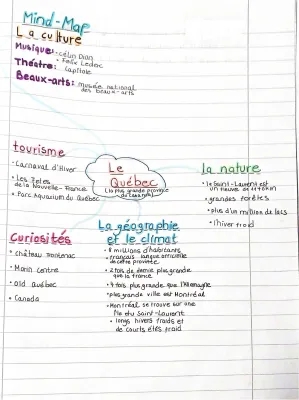 Mind-Map
La culture
Musique: • Célin Dion
• Felix Leclec
Théatre: Capitole
Beaux-arts: musée national
des beaux-arts
tourisme
• Carnaval d'Hiver
• Les fêtes
de la Nouvelle-France
• Parc Aquarium du Québec
Le
Québec
(la plus grande province
du Canada)
la nature
• le Saint-Laurent est
un fleuve
• grandes forêts
• plus d'un million de lacs
• l'hiver froid
Curiosités
• château frontenac
• Morin centre
• Old Québec
• Canada
La géographie
et le climat
• 8 millions d'habitants
• français langue officielle
de cette province
• 2 fois de demie plus grande
que la france
• 4 fois plus grande que l'Allemagne
• plus grande ville est Montréal
• Montréal se trouve sur une
île du Saint-Laurent
• longs hivers froids et
de courts étés froid